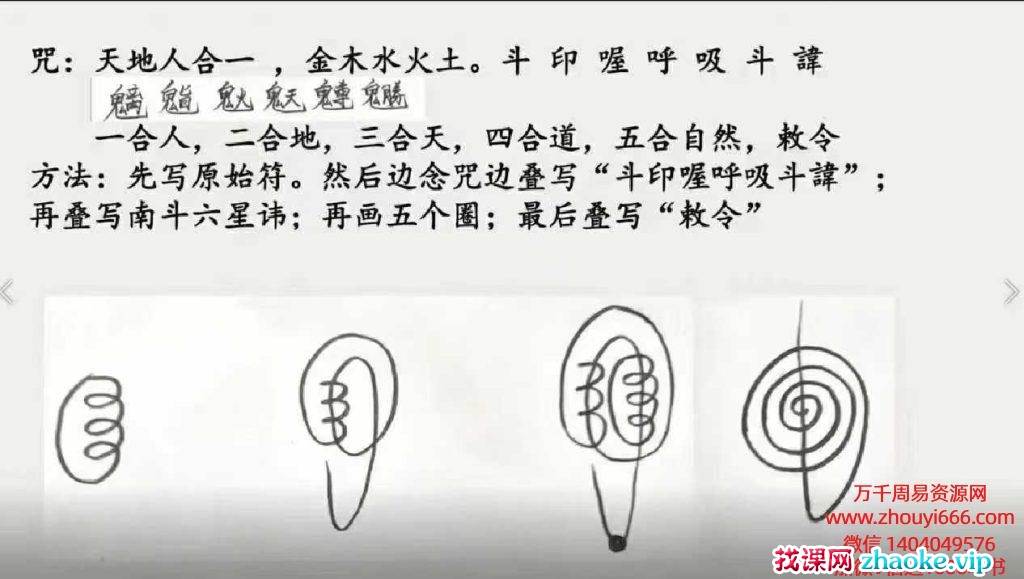 咒：天地人合一 ，金木水火土。斗 印 喔 呼 吸 斗 諱
魈 魀
一合人，二合地，三合天，四合道，五合自然，敕令
方法：先写原始符。然后边念咒边叠写“斗印喔呼吸斗諱”；
再叠写南斗六星讳；再画五个圈；最后叠写“敕令”
万千周易资源网
www.zhouyi666.com
微信 1404049576
找课网 zhaoke.vip
书